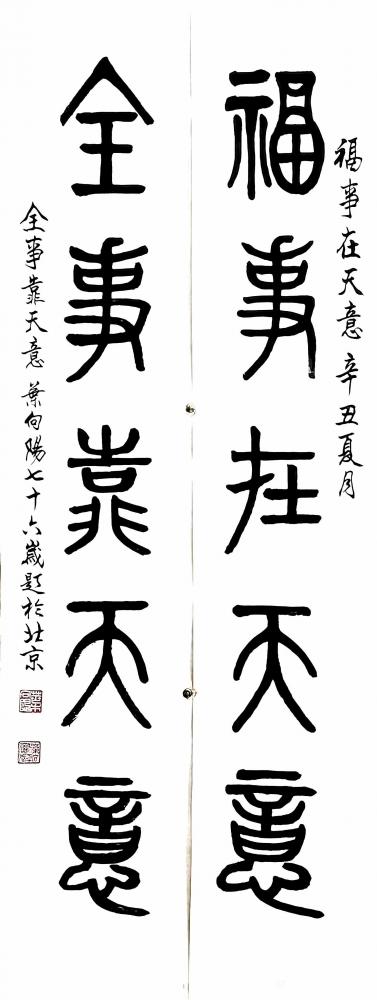 福事在天意 辛丑夏月
福事在天意
全事靠天意
全事靠天意 葉向陽七十六歲題於北京